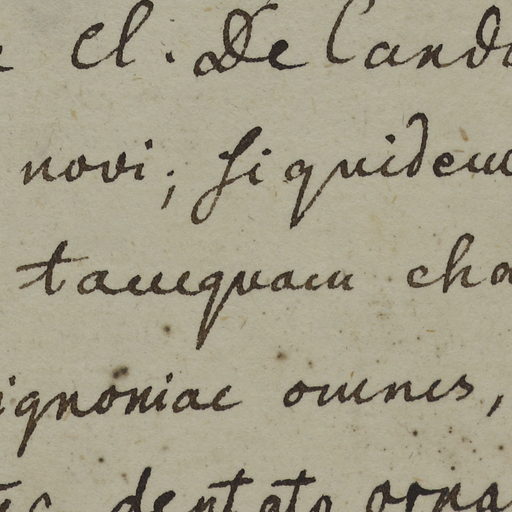 Cl. De Cando
novi; siquidem
tamquam cha
ignoniae omnes,
dentato orna